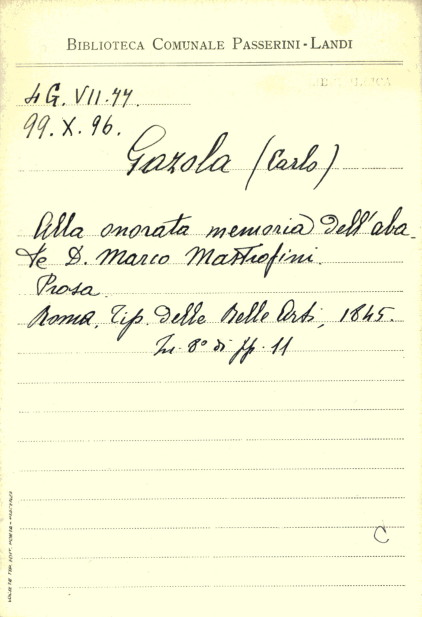 BIBLIOTECA COMUNALE PASSERINI-LANDI
4G. VII.44.
99. X. 96.
Gazola (Carlo)
Alla onorata memoria dell'aba-
te D. Marco Mastrofini.
Prosa.
Roma, Tip. delle Belle Arti, 1845.
In-8° di pp. 11
C